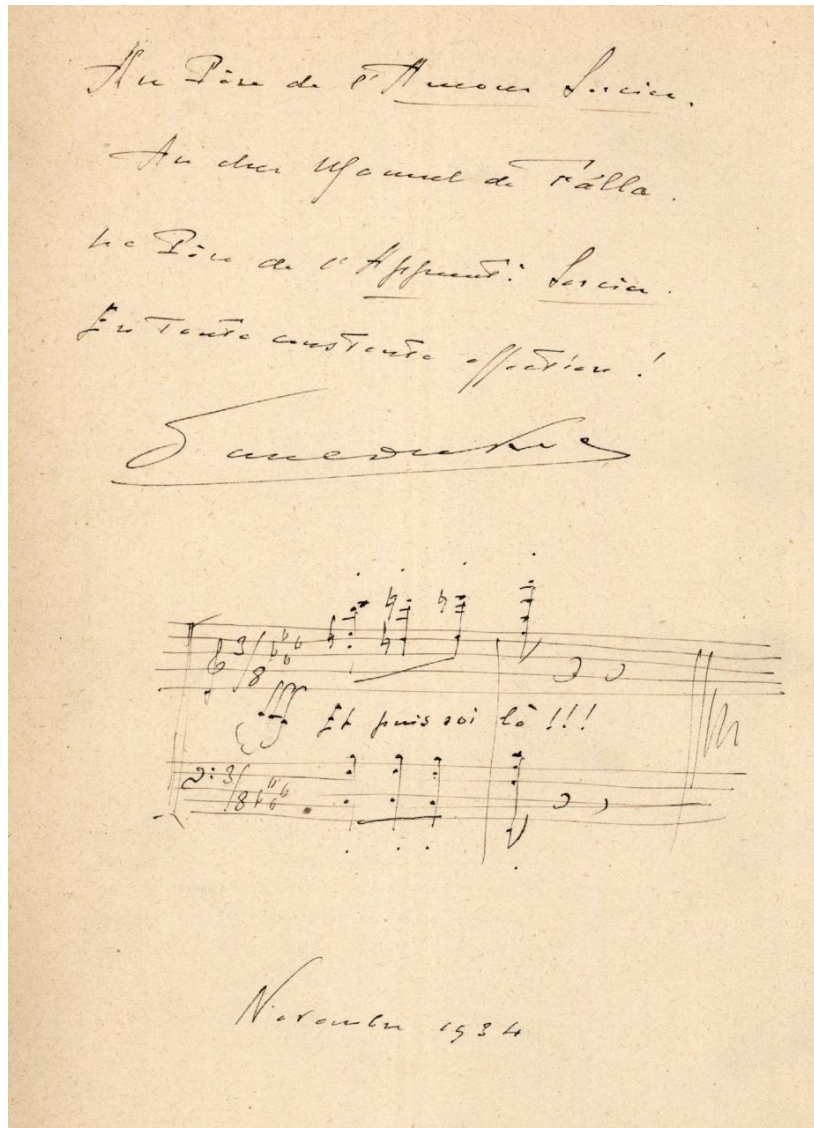 Au Père de l'Amour Sorcier.
Au cher Manuel de Fálla.
Le Père de l'Apprenti Sorcier.
En toute constante affection !
Paul Dukas
3/8
fff Et puis voilà !!!
3/8
Novembre 1934